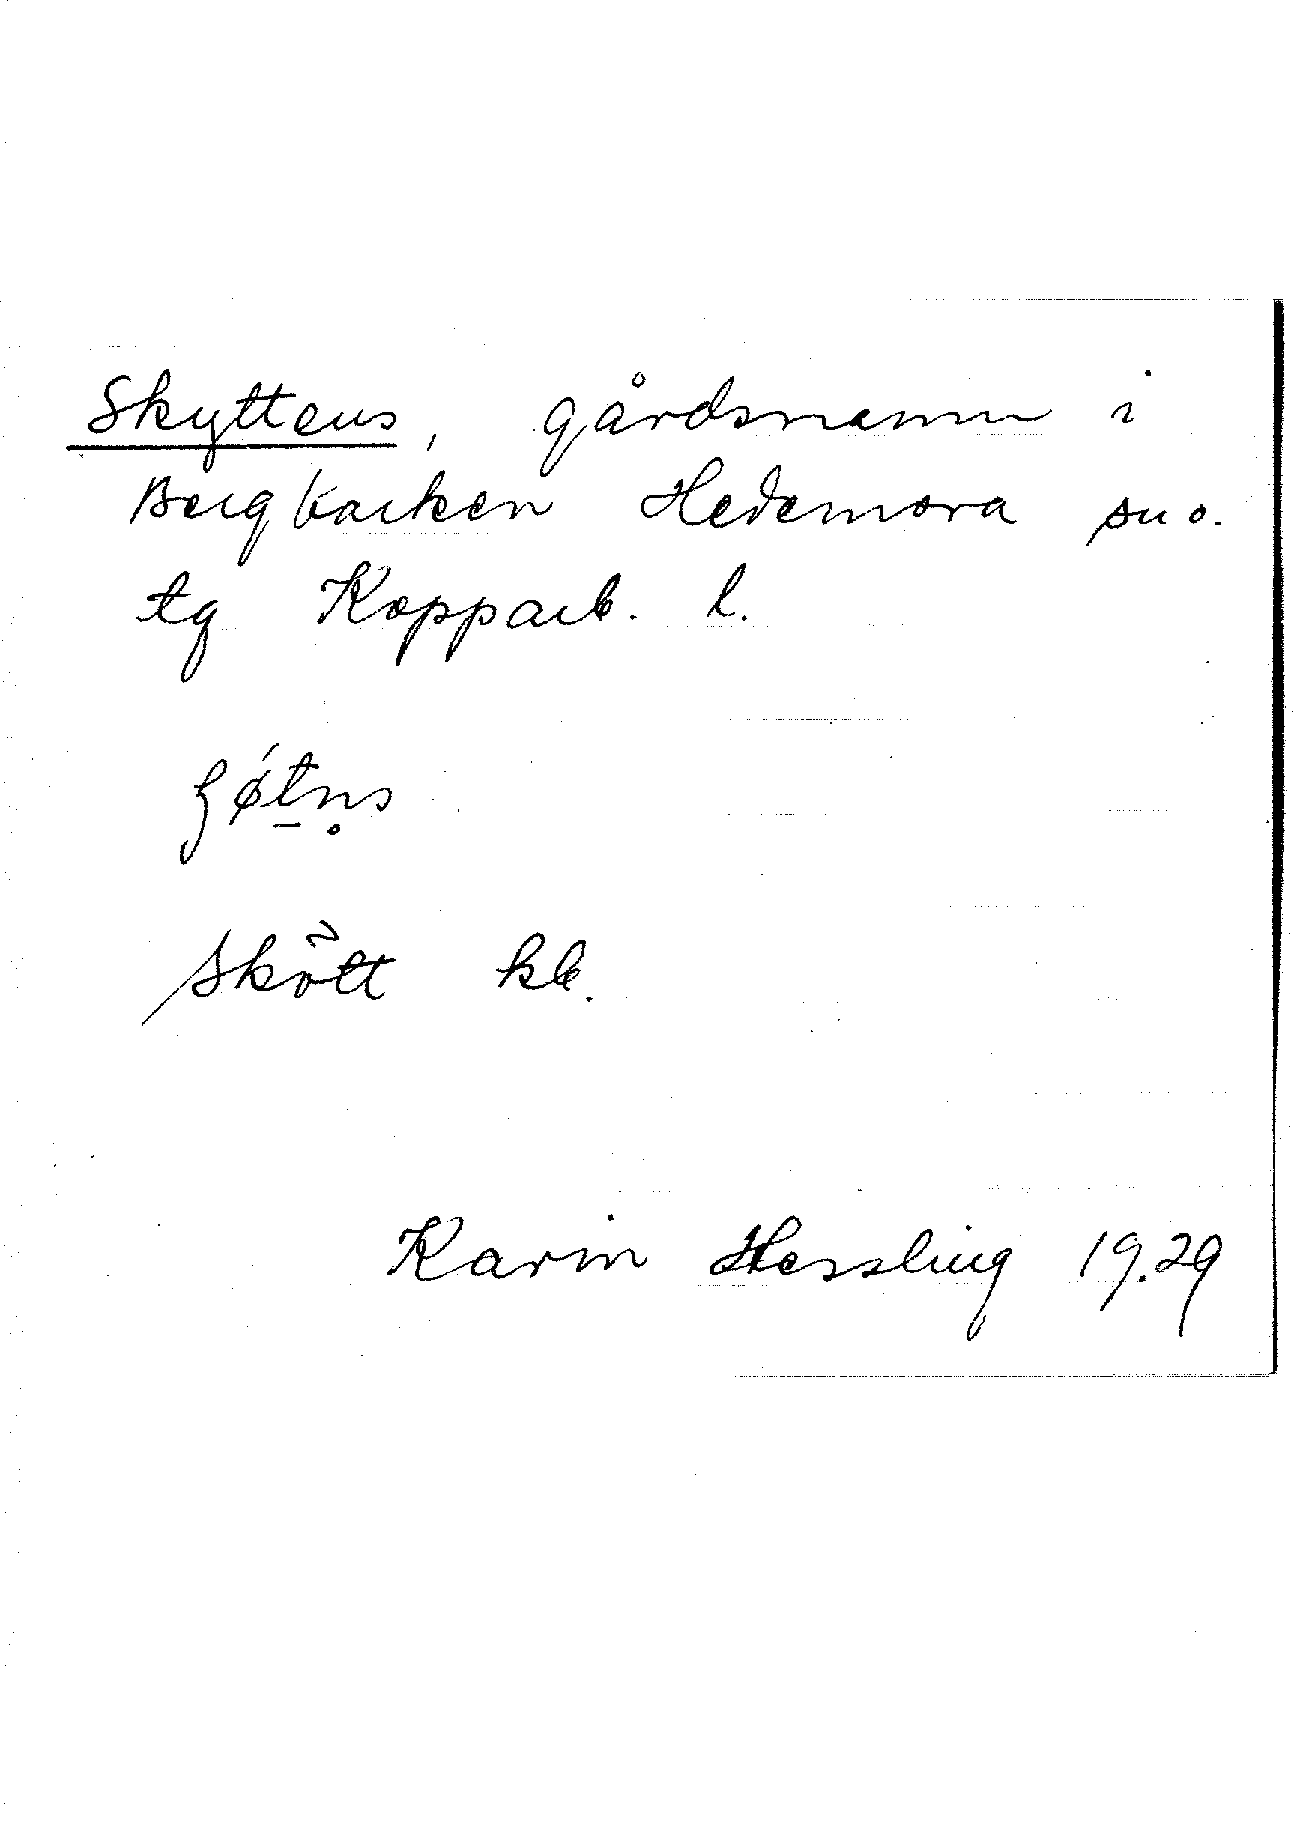 Skyttens, gårdsnamn i
Bergbacken Hedemora sn o.
tg Kopparb. l.
skött kb.
Karin Hessling 19.29